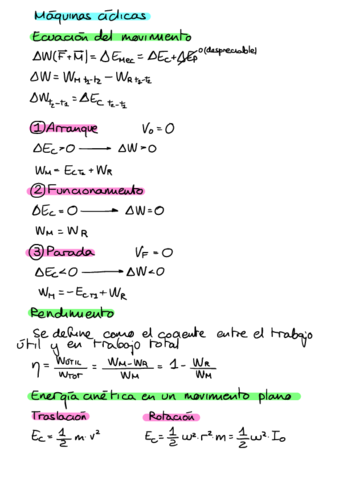 Máquinas cíclicas
Ecuación del movimiento
ΔW(F̄+M̄) = ΔE_Mec = ΔE_c + ΔE_p 0 (despreciable)
ΔW = W_M t₁-t₂ - W_R t₂-t₁
ΔW_t₂-t₁ = ΔE_C t₂-t₁
① Arranque V₀ = 0
ΔE_c > 0 ⟶ ΔW > 0
W_M = E_CT₂ + W_R
② Funcionamiento
ΔE_c = 0 ⟶ ΔW = 0
W_M = W_R
③ Parada V_F = 0
ΔE_c < 0 ⟶ ΔW < 0
W_M = -E_CT1 + W_R
Rendimiento
Se define como el cociente entre el trabajo
útil y en trabajo total
η = W_ÚTIL / W_TOT = W_M - W_R / W_M = 1 - W_R / W_M
Energía cinética en un movimiento plano
Traslación Rotación
E_c = 1/2 m · v² E_c = 1/2 ω² · r² · m = 1/2 ω² · I₀